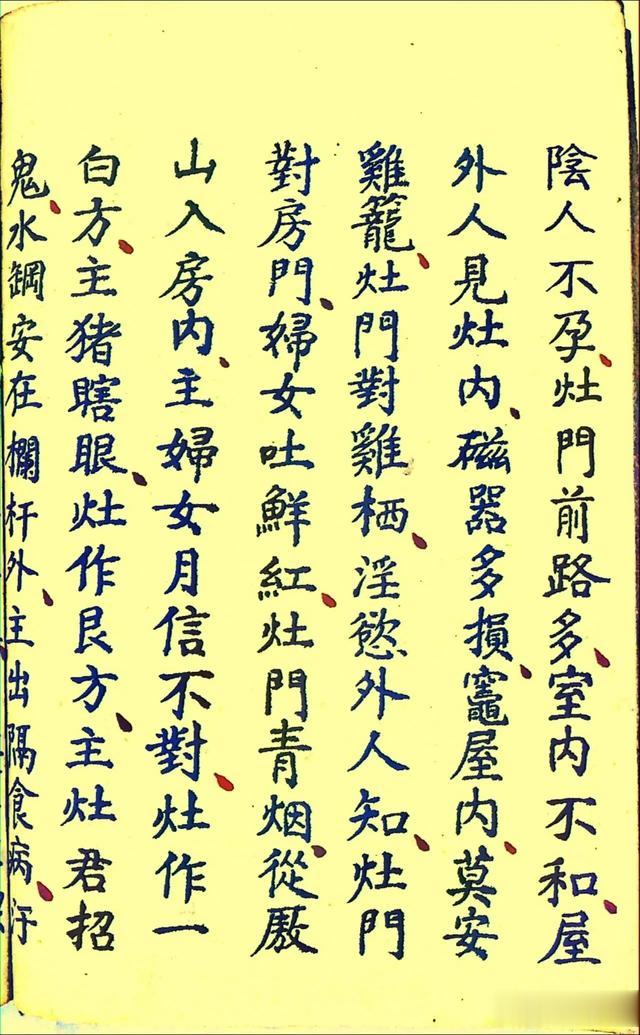 陰人不孕灶門前路多室内不和屋
外人見灶内磁器多損竈屋内莫安
雞籠灶門對雞栖淫慾外人知灶門
對房門婦女吐鮮紅灶門青烟從厫
山入房内主婦女月信不對灶作一
白方主猪瞎眼灶作艮方主灶君招
鬼水鋼安在欄杆外主出隔食病